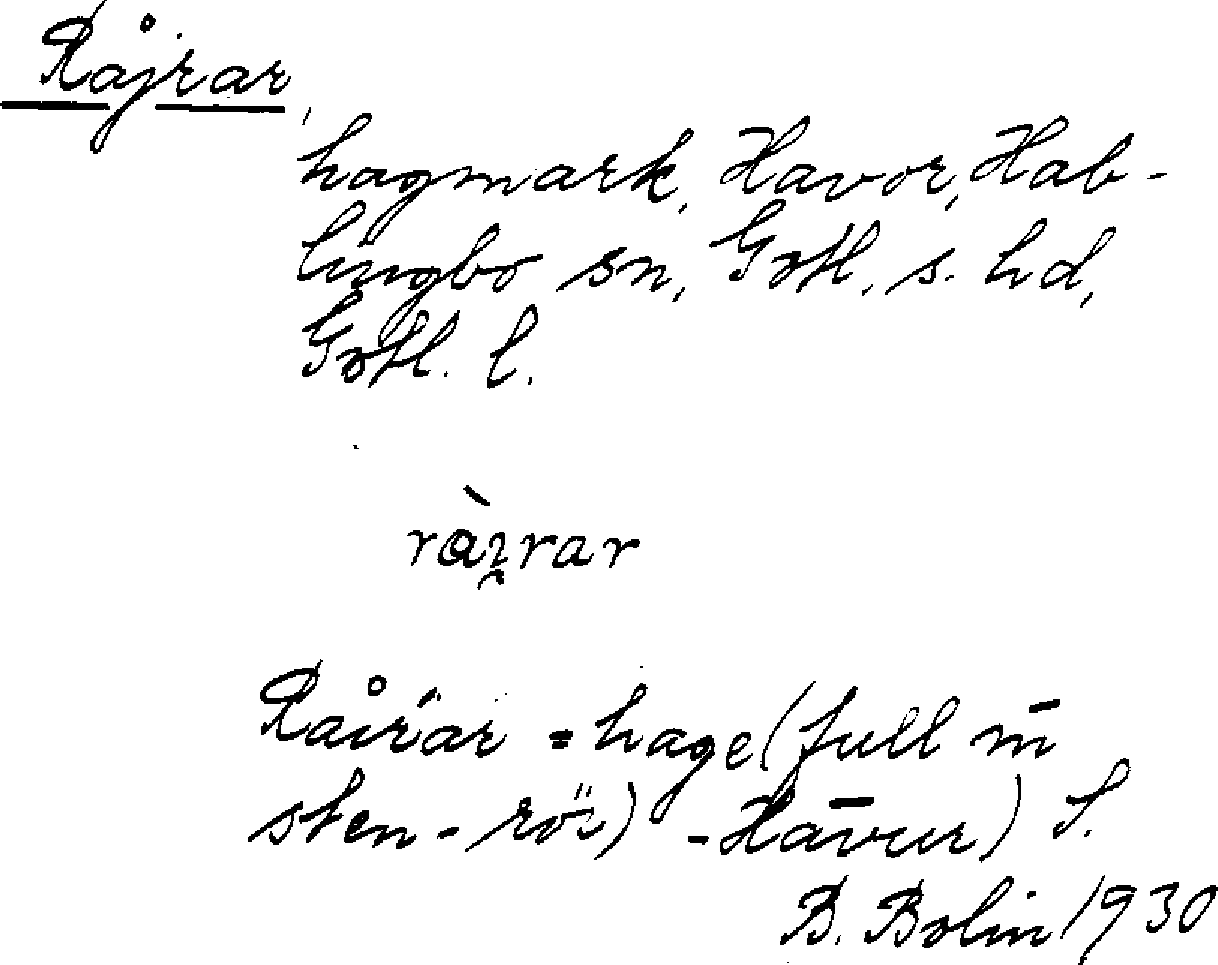 Råjrar,
hagmark, Havor, Hab-
lingbo sn, Gotl. s. hd,
Gotl. l.
Råirär = hage (full m̄
sten-rör) - Hāvur) S.
B. Bolin 1930